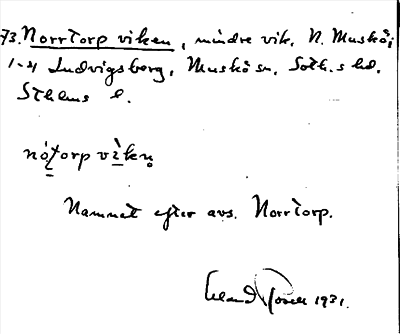 73. Norrtorp viken, mindre vik, N. Muskö;
1-4 Ludvigsberg, Muskö sn, Soth.s hd.
Sthlms l.
nó̱torp vi̱kẹn
Namnet efter avs. Norrtorp.
1931.